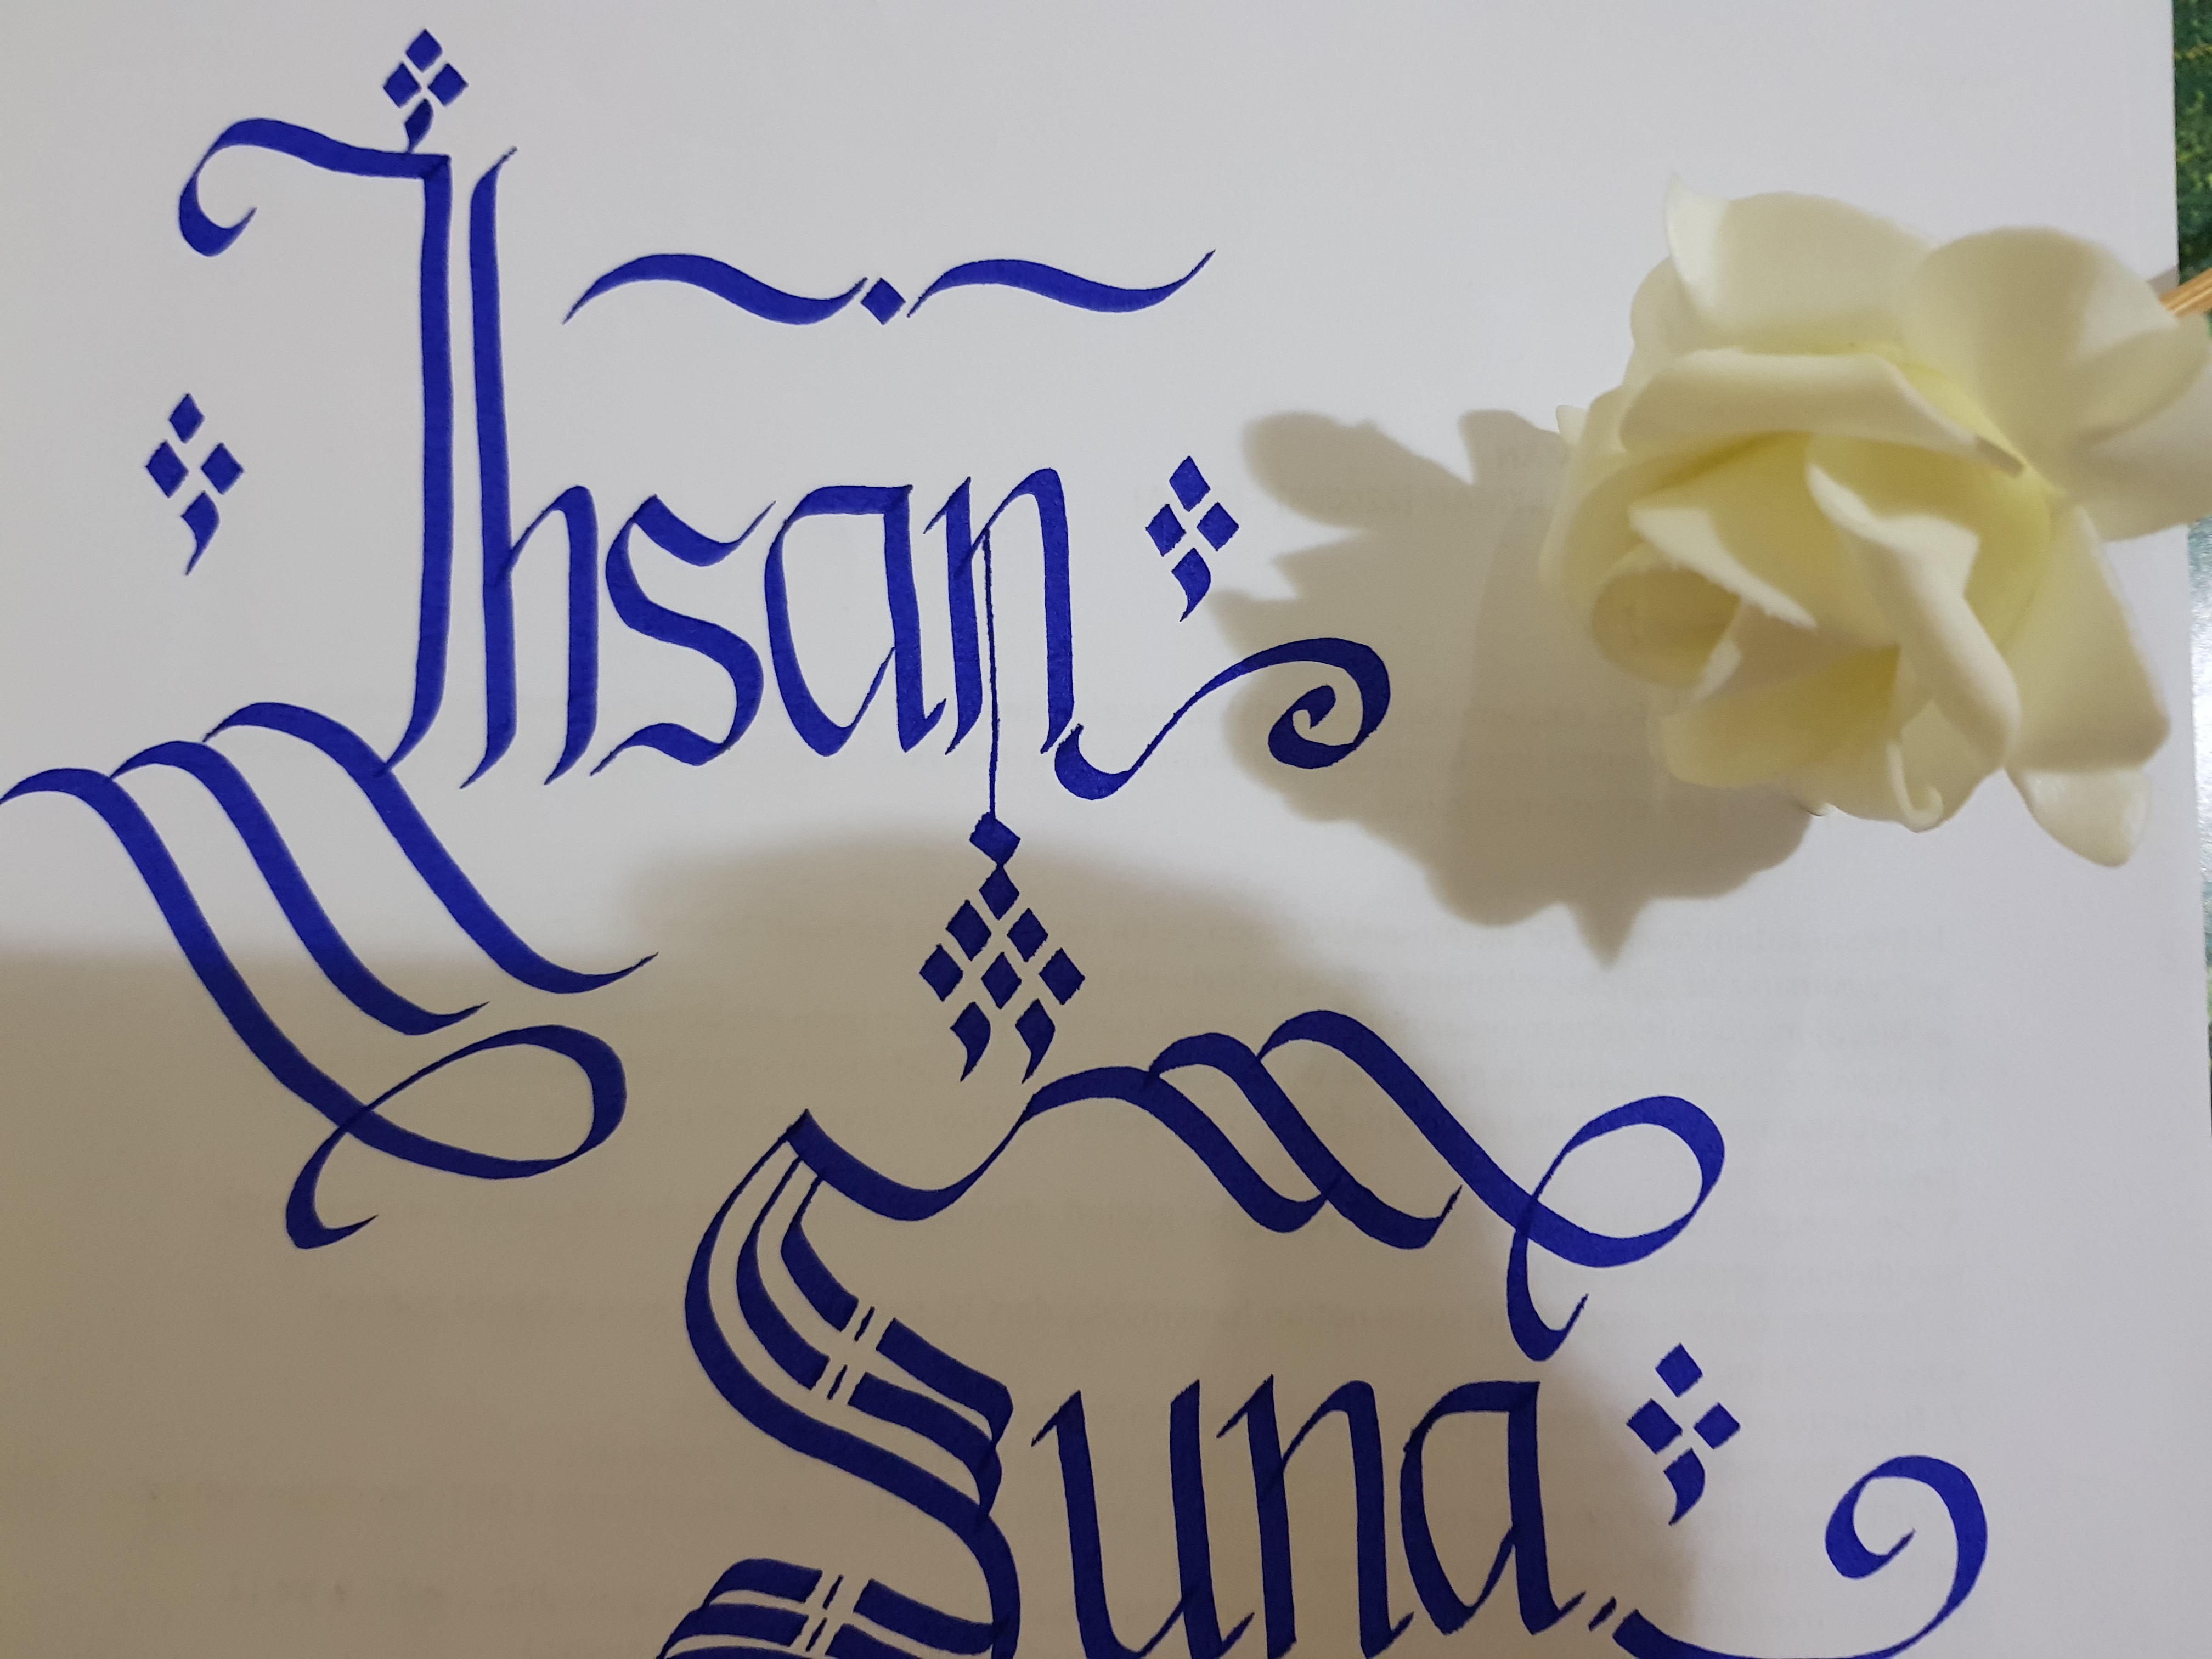 İhsan
Suna